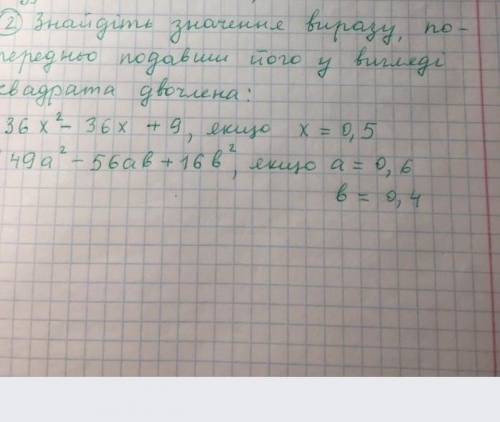 ② Знайдіть значення виразу, по-
передньо подавши його у вигляді
квадрата двочлена:
36x² - 36x + 9, якщо x = 0,5
49a² - 56ab + 16b², якщо a = 0,6
b = 0,4